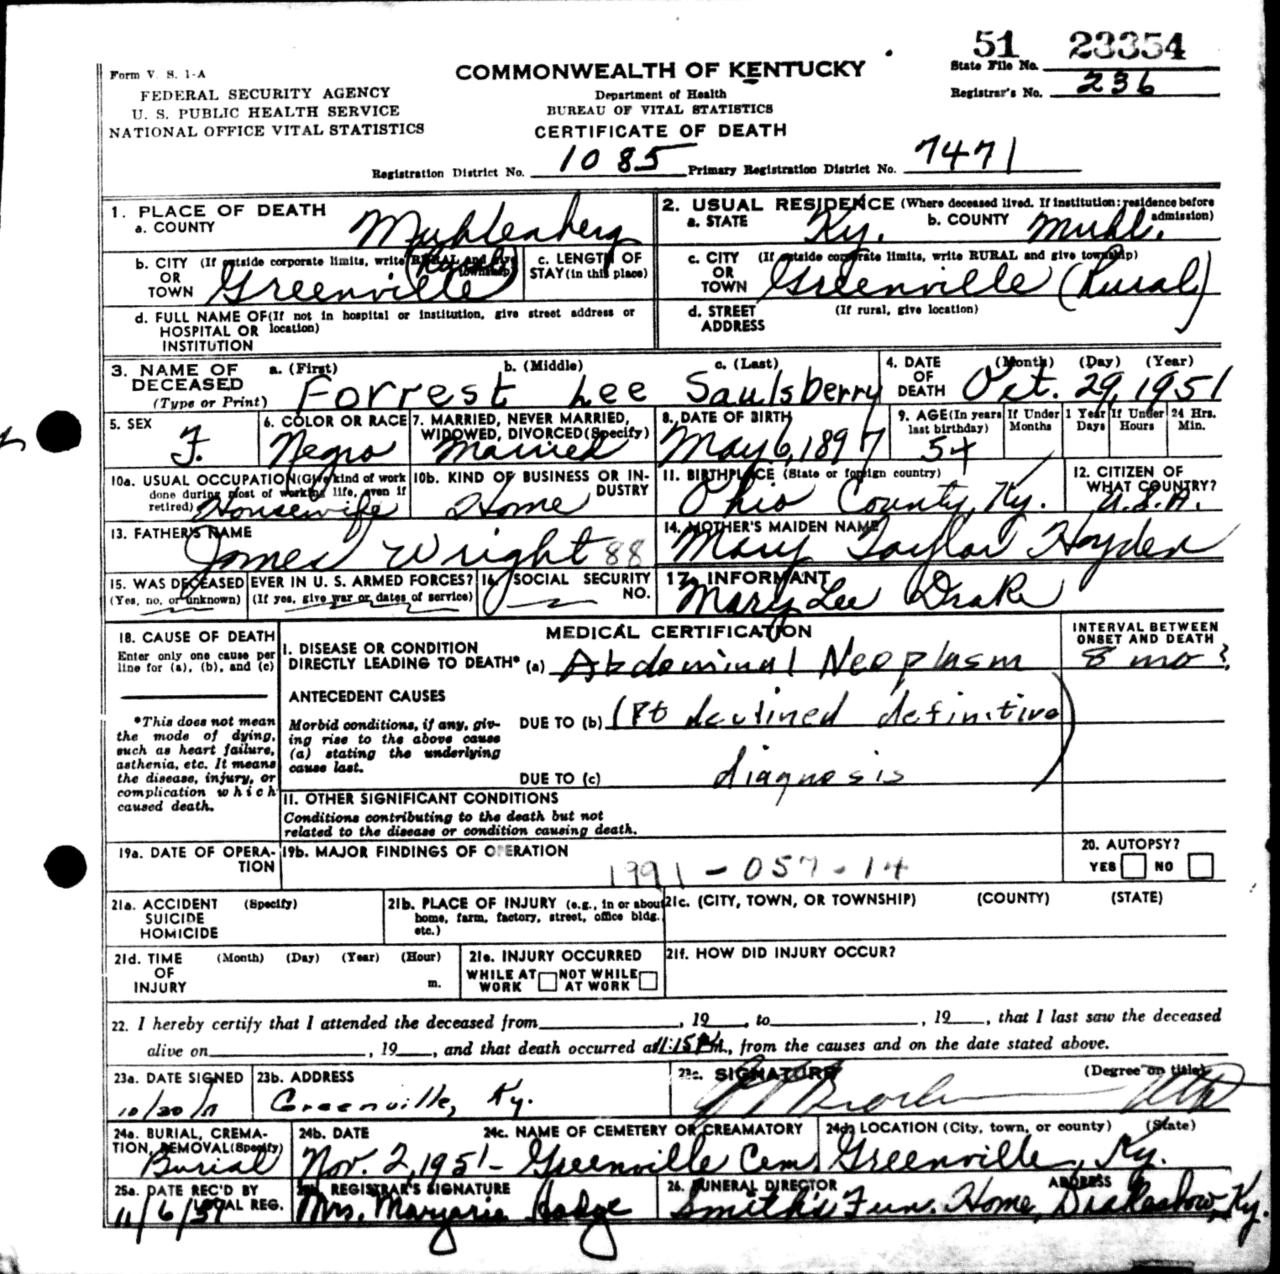 51 23354
Form V. S. 1-A
COMMONWEALTH OF KENTUCKY
State File No.
FEDERAL SECURITY AGENCY
Department of Health
Registrar's No. 236
U. S. PUBLIC HEALTH SERVICE
BUREAU OF VITAL STATISTICS
NATIONAL OFFICE VITAL STATISTICS
CERTIFICATE OF DEATH
Registration District No. 1085 Primary Registration District No. 7471
1. PLACE OF DEATH
a. COUNTY Muhlenberg
2. USUAL RESIDENCE (Where deceased lived. If institution: residence before admission)
a. STATE Ky. b. COUNTY Muhl.
b. CITY (If outside corporate limits, write RURAL and give township)
OR
TOWN Greenville (Rural)
c. LENGTH OF
STAY (in this place)
c. CITY (If outside corporate limits, write RURAL and give township)
OR
TOWN Greenville (Rural)
d. FULL NAME OF (If not in hospital or institution, give street address or
HOSPITAL OR location)
INSTITUTION
d. STREET (If rural, give location)
ADDRESS
3. NAME OF DECEASED a. (First) b. (Middle) c. (Last)
(Type or Print) Forrest Lee Saulsberry
4. DATE OF DEATH (Month) (Day) (Year)
Oct. 29, 1951
5. SEX
F.
6. COLOR OR RACE
Negro
7. MARRIED, NEVER MARRIED,
WIDOWED, DIVORCED (Specify)
Married
8. DATE OF BIRTH
May 6, 1897
9. AGE (In years last birthday)
54
If Under 1 Year
Months Days
If Under 24 Hrs.
Hours Min.
10a. USUAL OCCUPATION (Give kind of work
done during most of working life, even if
retired) Housewife
10b. KIND OF BUSINESS OR IN-
DUSTRY
Home
11. BIRTHPLACE (State or foreign country)
Ohio County, Ky.
12. CITIZEN OF
WHAT COUNTRY?
U.S.A.
13. FATHER'S NAME
James Wright 88
14. MOTHER'S MAIDEN NAME
Mary Taylor Hayden
15. WAS DECEASED EVER IN U. S. ARMED FORCES?
(Yes, no, or unknown) (If yes, give war or dates of service)
16. SOCIAL SECURITY
NO.
17. INFORMANT
Mary Lee Drake
18. CAUSE OF DEATH
Enter only one cause per
line for (a), (b), and (c)
MEDICAL CERTIFICATION
INTERVAL BETWEEN
ONSET AND DEATH
I. DISEASE OR CONDITION
DIRECTLY LEADING TO DEATH* (a) Abdominal Neoplasm
8 mo ?
*This does not mean
the mode of dying,
such as heart failure,
asthenia, etc. It means
the disease, injury, or
complication which
caused death.
ANTECEDENT CAUSES
Morbid conditions, if any, giv-
ing rise to the above cause
(a) stating the underlying
cause last.
DUE TO (b) (Pt declined definitive
DUE TO (c) diagnosis)
II. OTHER SIGNIFICANT CONDITIONS
Conditions contributing to the death but not
related to the disease or condition causing death.
19a. DATE OF OPERA-
TION
19b. MAJOR FINDINGS OF OPERATION
1991-057-14
20. AUTOPSY?
YES NO
21a. ACCIDENT (Specify)
SUICIDE
HOMICIDE
21b. PLACE OF INJURY (e.g., in or about
home, farm, factory, street, office bldg.
etc.)
21c. (CITY, TOWN, OR TOWNSHIP) (COUNTY) (STATE)
21d. TIME (Month) (Day) (Year) (Hour)
OF
INJURY m.
21e. INJURY OCCURRED
WHILE AT WORK NOT WHILE AT WORK
21f. HOW DID INJURY OCCUR?
22. I hereby certify that I attended the deceased from , 19 , to , 19 , that I last saw the deceased
alive on , 19 , and that death occurred at 11:15 P.m., from the causes and on the date stated above.
23a. DATE SIGNED
23b. ADDRESS
Greenville, Ky.
23c. SIGNATURE (Degree on title)
24a. BURIAL, CREMA-
TION, REMOVAL (Specify)
Burial
24b. DATE
Nov. 2, 1951
24c. NAME OF CEMETERY OR CREAMATORY
Greenville Cem.
24d. LOCATION (City, town, or county) (State)
Greenville, Ky.
25a. DATE REC'D BY
LOCAL REG.
11/6/51
REGISTRAR'S SIGNATURE
Mrs. Margarie Hodge
26. FUNERAL DIRECTOR ADDRESS
Smith's Fun. Home, Drakesboro, Ky.